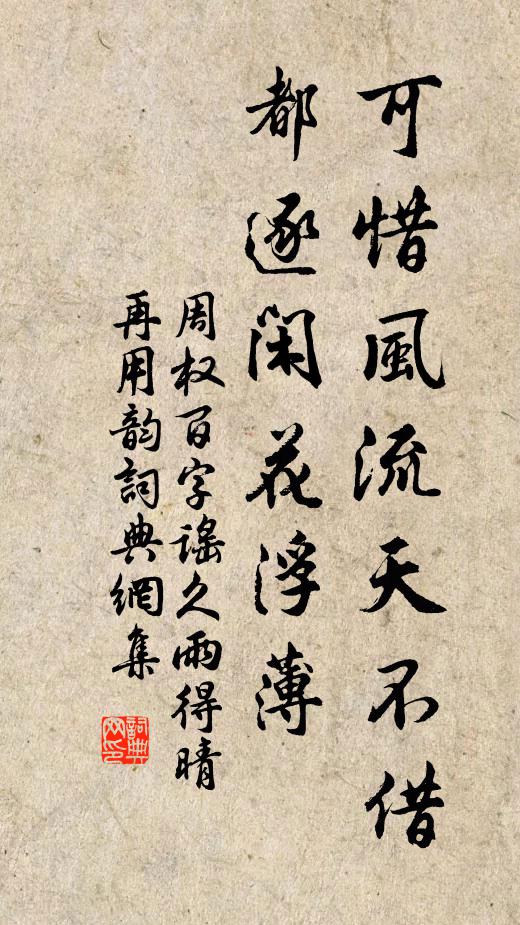 可惜風流天不借
都逐閑花浮薄
周权百字謠久雨得晴
再用韵詞典網集
詞典
网印